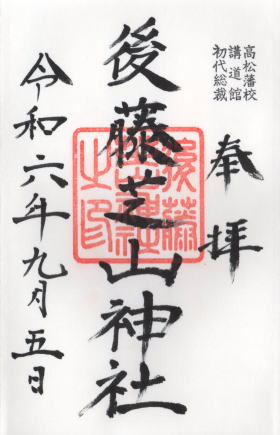 高松藩校
講道館
初代総裁
奉拝
後藤芝山神社
後藤芝山神社之印
令和六年九月五日